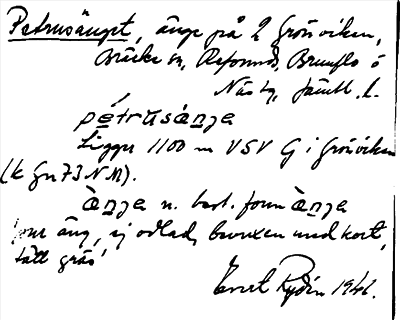 Petrusänget, änge på 2 Grönviken,
Bräcke sn, Refsunds, Brunflo o
Näs tg, Jämtl. l.
pétrusänja
Ligger 1100 m VSV G i Grönviken
(k Gn 73 NM).
ànja n. best. form ànja
äng, ej odlad, bevuxen med kort,
tätt gräs
Evert Rydén 1941.